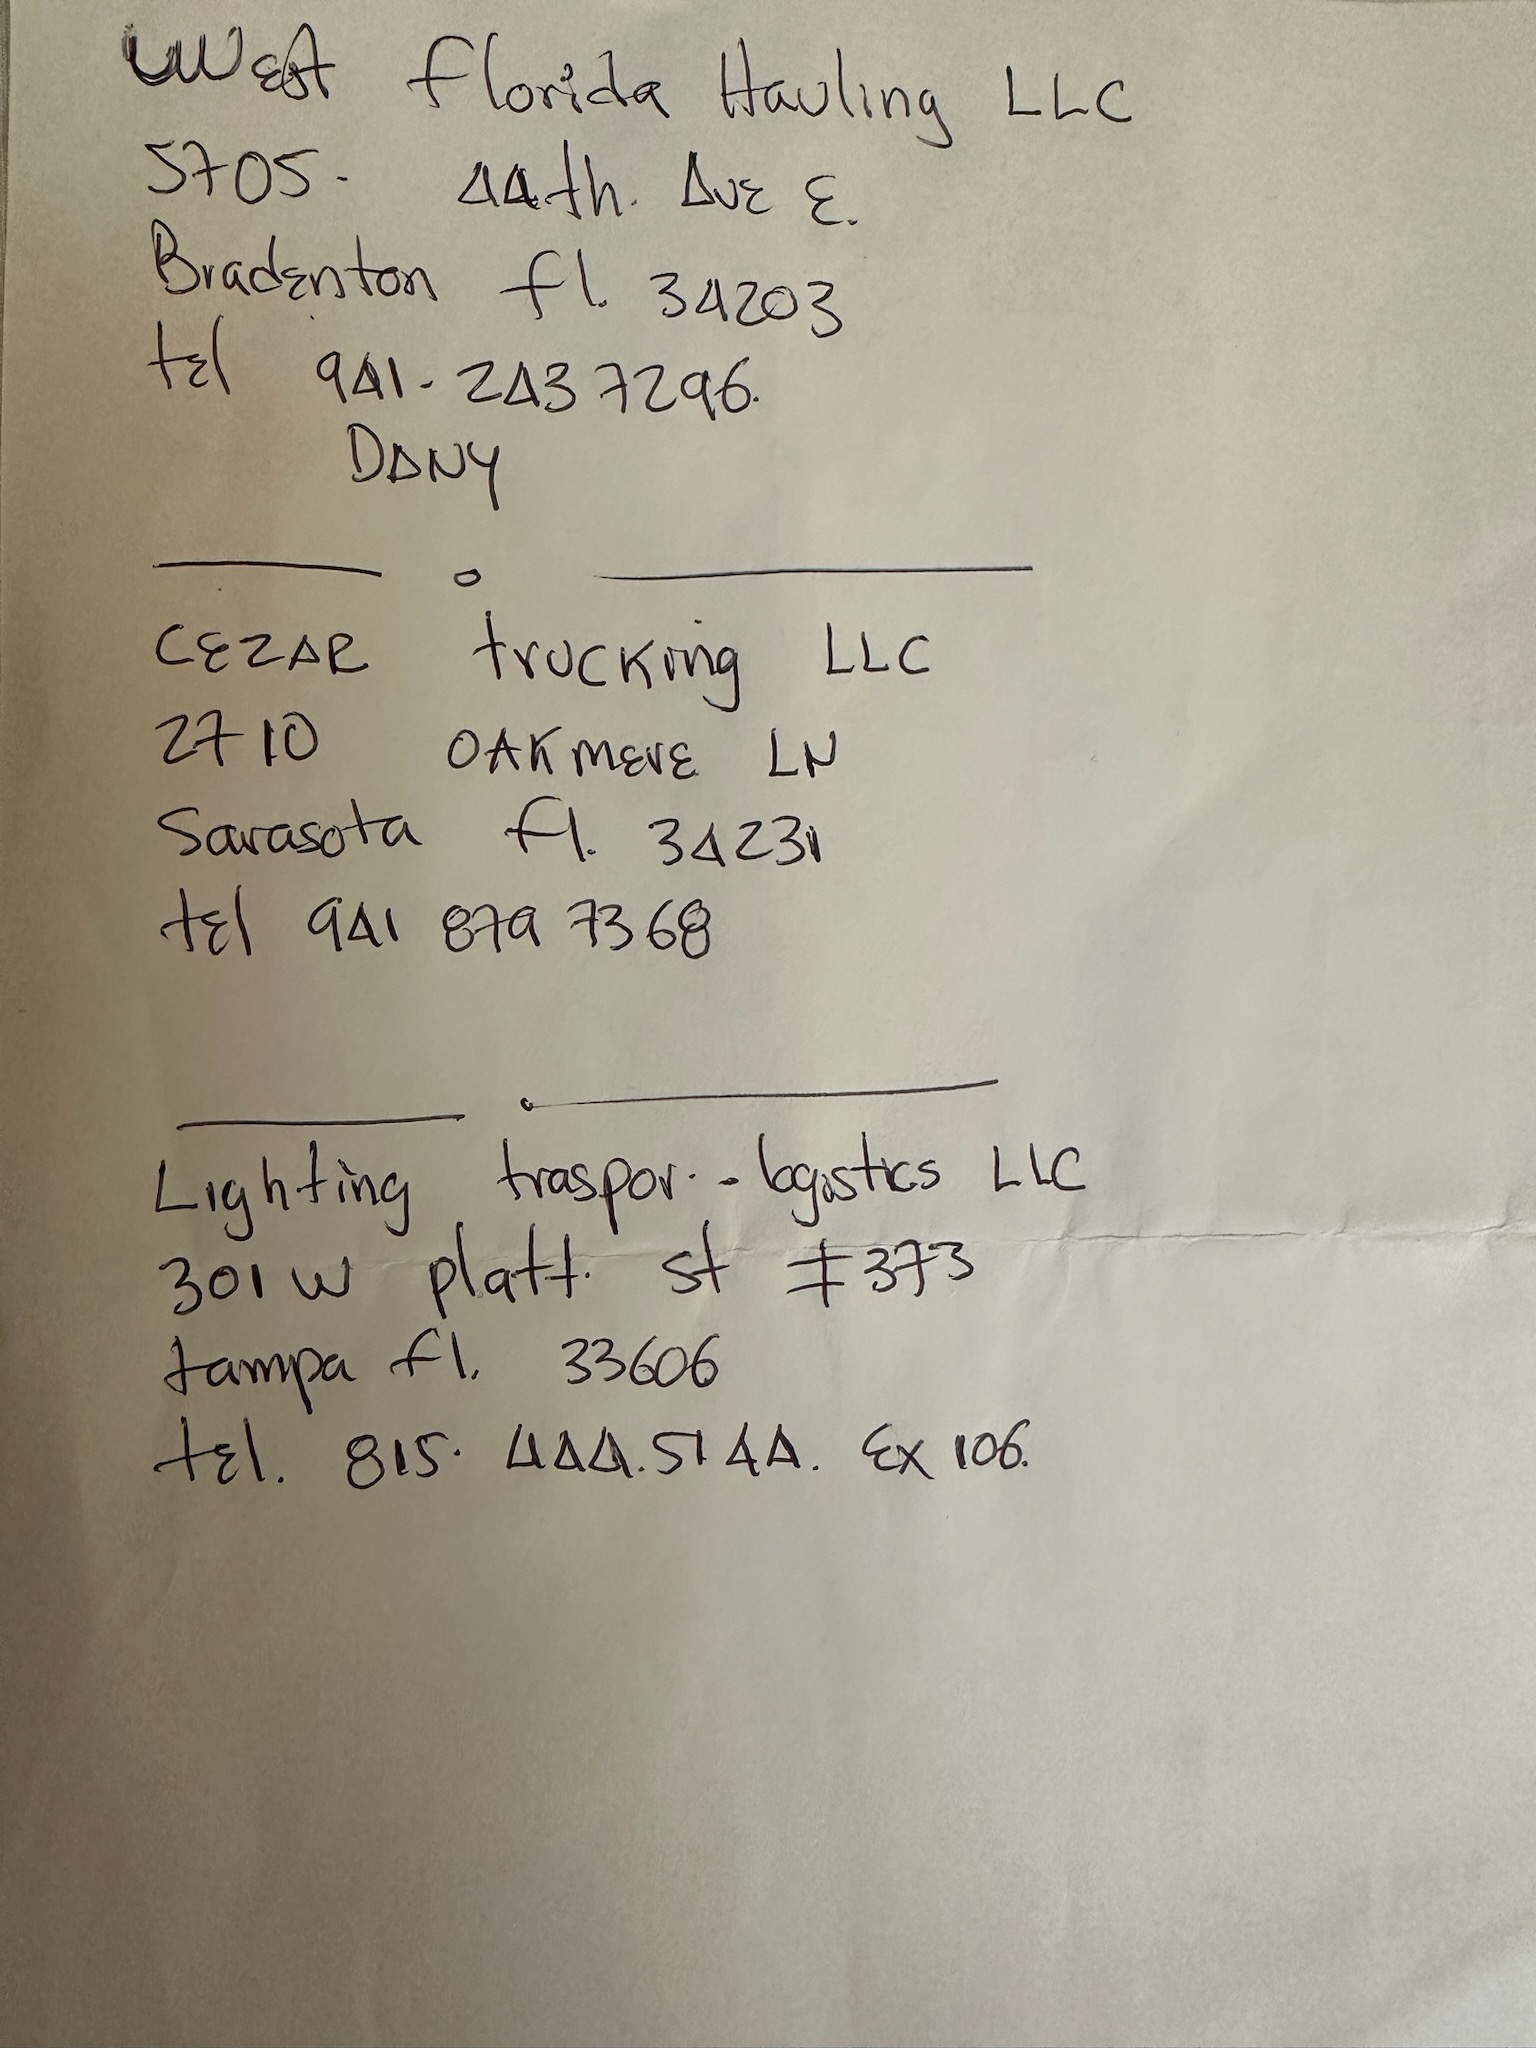 West Florida Hauling LLC
5705. 44th. Ave E.
Bradenton fl. 34203
tel 941-243 7296.
DANY
CEZAR trucking LLC
2710 OAKmere LN
Sarasota fl. 34231
tel 941 879 7368
Lighting traspor. - logistics LLC
301 W platt. st #373
tampa fl. 33606
tel. 815. 444.5144. Ex 106.